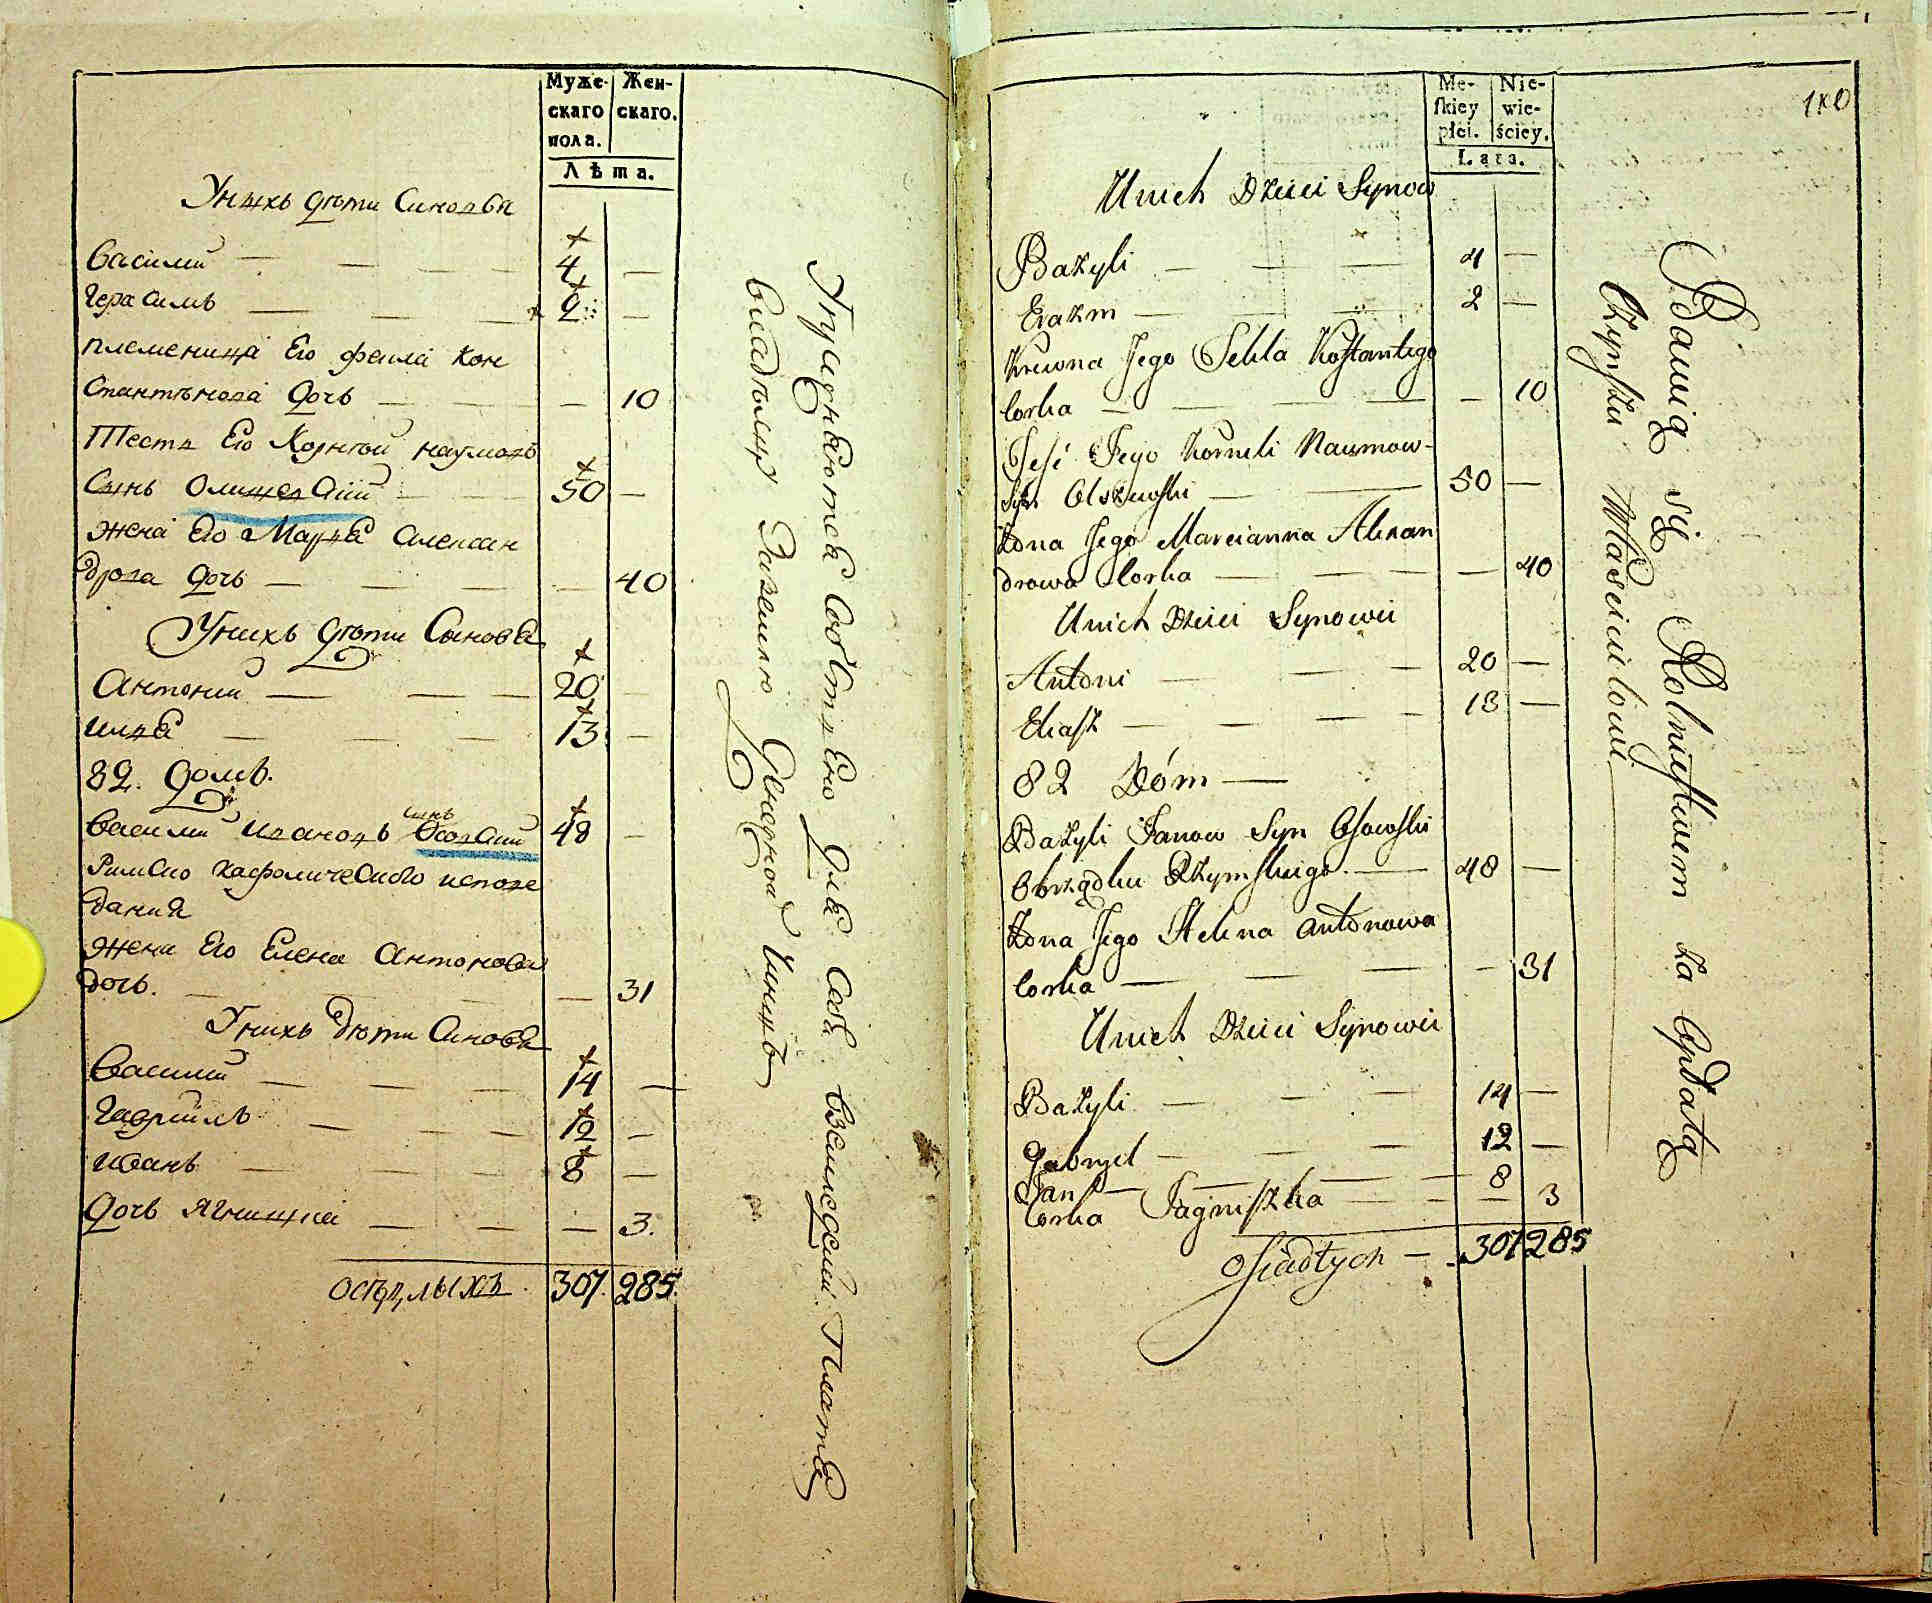 Муже-
скаго
пола.
Жен-
скаго.
Лѣта.
Унихъ дѣти Синовья
Василий — 4 —
Герасимъ — 2 —
племеница Его феила Кон
стантѣнова дочь — — 10
Тестя Его Корнѣй наумовъ
Сынъ Олишевский 50 —
жена Его Марья Алексан
дрова дочь — — 40
Унихъ дѣти Сыновья
Антоний — 20 —
илья — 13 —
82. домъ.
сынъ
Василий ивановъ Осовский 48 —
Римско Кафолическаго испове
дания
жена Его Елена Антонова
дочь. — — 31
Унихъ дѣти Синовья
Василий — 14 —
Гаврийлъ — 12 —
иванъ — 8 —
дочь Ягнишка — — 3.
осѣдлыхъ 307. 285.
Упражняются Собствено для себя вземледелии Платя
владѣлцу Заземлю денежной Чиншъ
Mę-
skiey
płci.
Nie-
wie-
ściey.
Lata.
1x0
Unich Dzieci Synow
Bazyli — 4 —
Erazm — 2 —
Krewna Jego Tekla Kostantego
Corka — — 10
Teść Jego Korneli Naumow-
Syn Olszewski — 50 —
Żona Jego Marcianna Alexan
drowa Corka — — 40
Unich Dzieci Synowie
Antoni — 20 —
Eliasz — 13 —
82 Dóm —
Bazyli Janow Syn Osowski
Obrządku Rzymskiego. — 48 —
Żona Jego Helena Antonowa
Corka — — 31
Unich Dzieci Synowie
Bazyli — 14 —
Gabryel — 12 —
Jan — 8
Corka Jagniszka — — 3
Osiadłych — 307 285
Bawią się Rolnictwem za Opłatą
Czynszu Właścicielowi